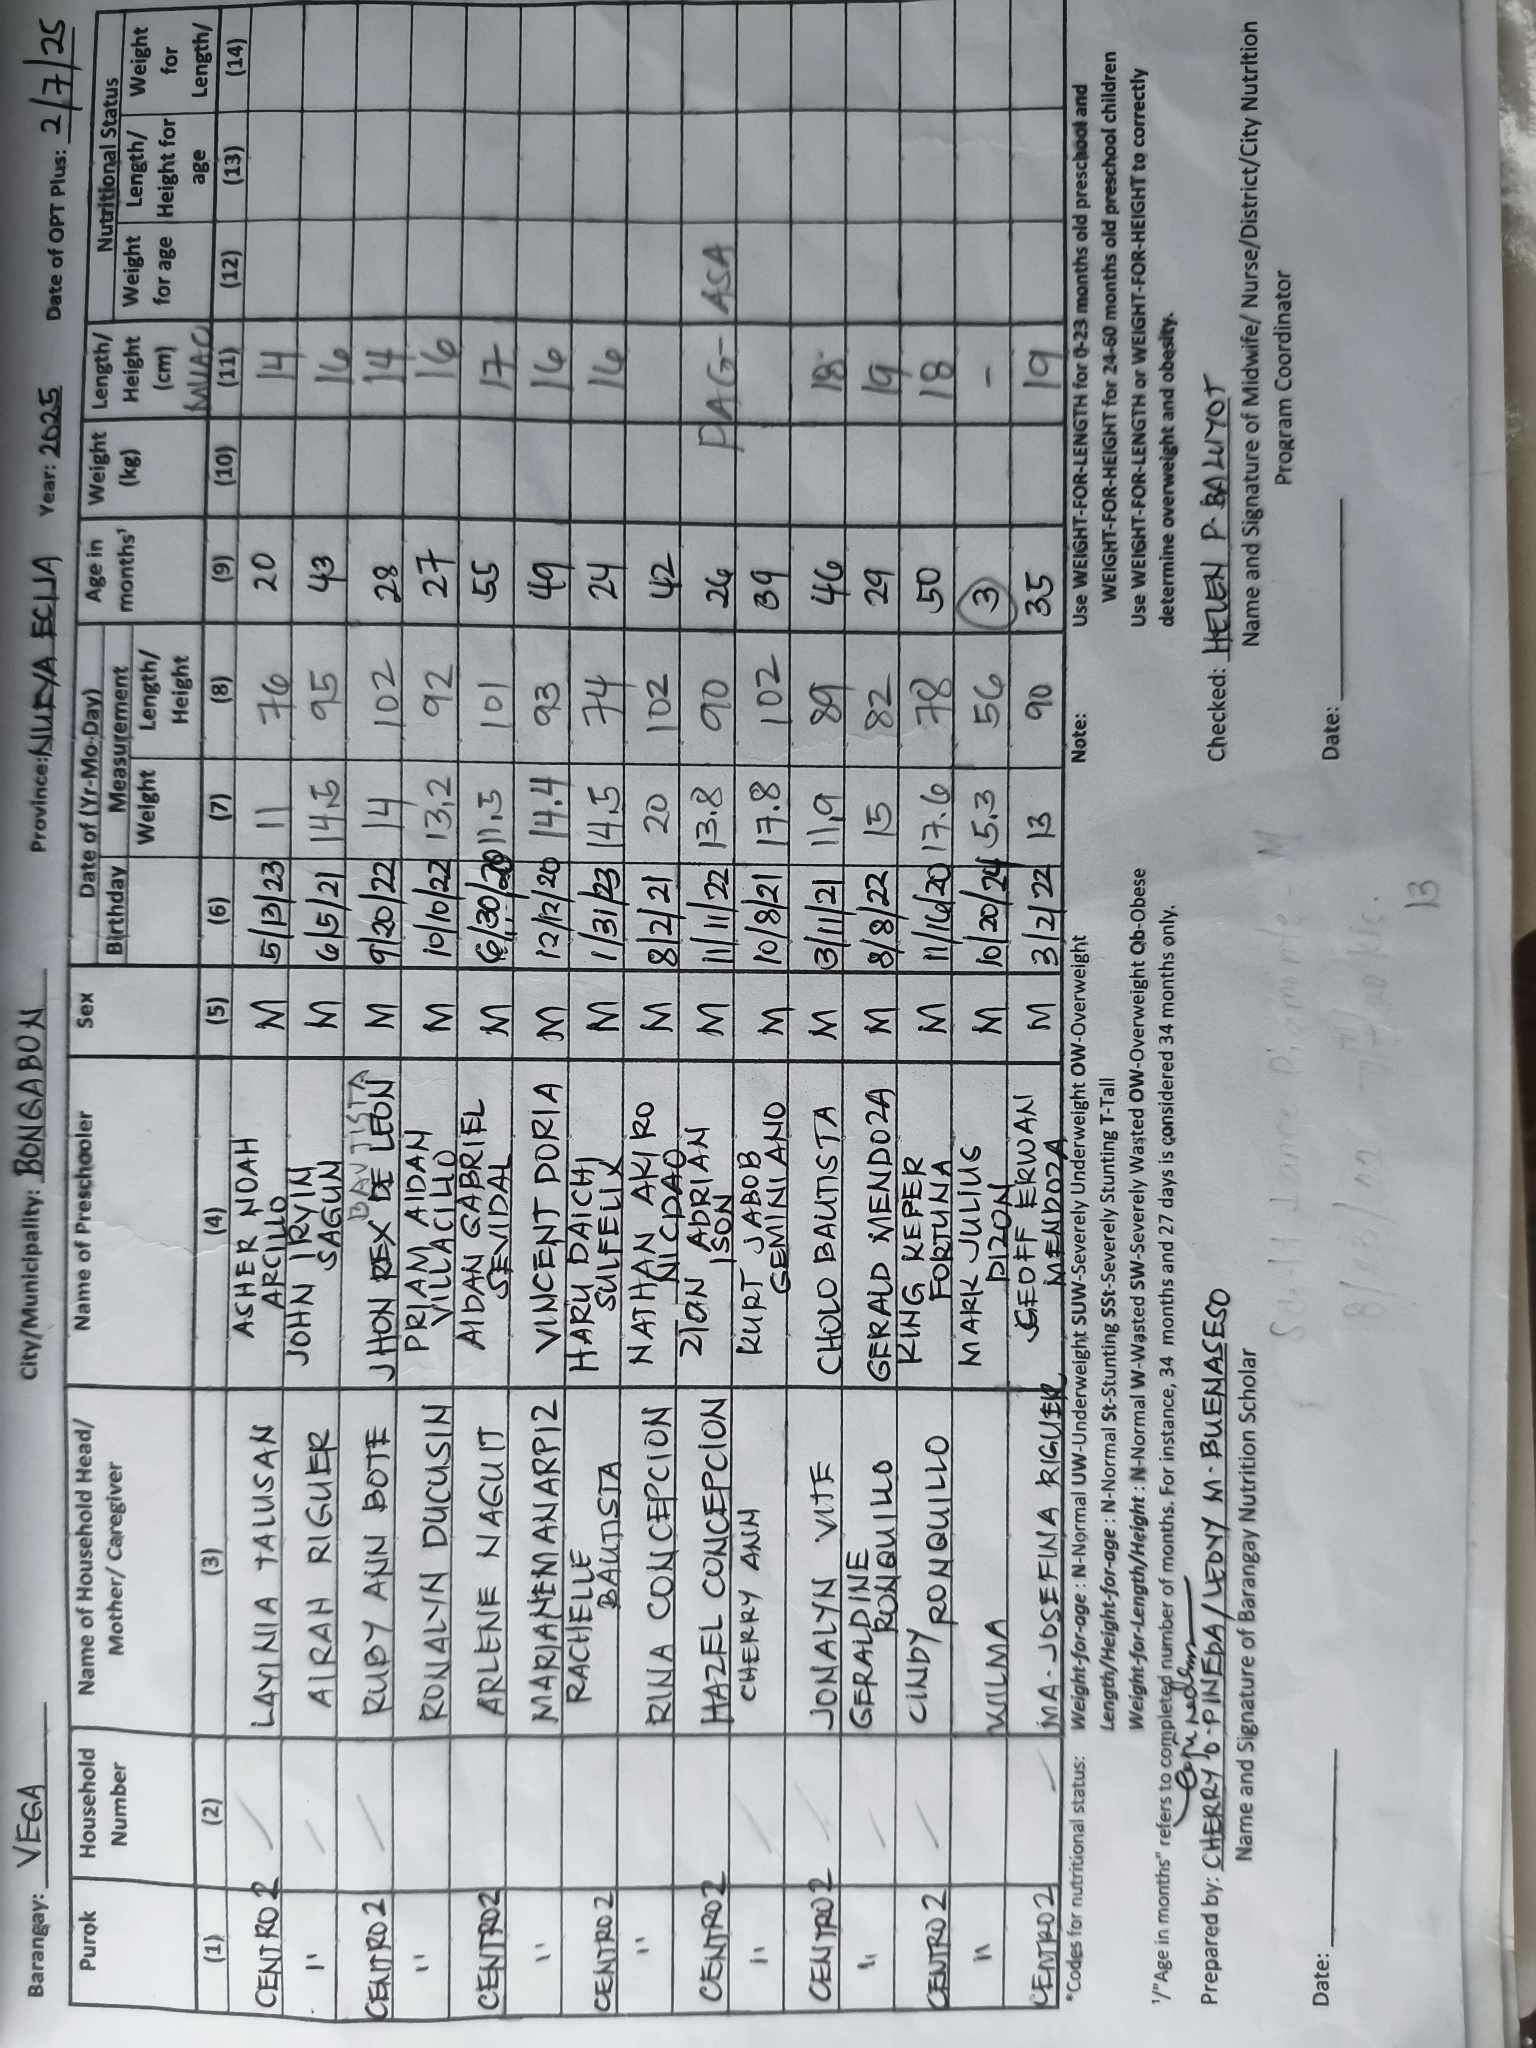 Barangay: VEGA City/Municipality: BONGABON Province: NUEVA ECIJA Year: 2025 Date of OPT Plus: 2/7/25
Purok Household Number Name of Household Head/ Mother/ Caregiver Name of Preschooler Sex Date of (Yr-Mo-Day) Birthday Measurement Weight Length/ Height Age in months¹ Weight (kg) Length/ Height (cm) MUAC Nutritional Status Weight for age Length/ Height for age Weight for Length/
(1) (2) (3) (4) (5) (6) (7) (8) (9) (10) (11) (12) (13) (14)
CENTRO 2 LAVINIA TALUSAN ASHER NOAH ARCILLO M 5/13/23 11 76 20 14
" AIRAH RIGUER JOHN IRVIN SAGUN M 6/5/21 14.5 95 43 16
CENTRO 2 RUBY ANN BOTE JHON REX DE LEON BAUTISTA M 9/20/22 14 102 28 14
" RONALYN DUCUSIN PRIAM AIDAN VILLACILLO M 10/10/22 13.2 92 27 16
CENTRO 2 ARLENE NAGUIT AIDAN GABRIEL SEVIDAL M 6/30/20 11.5 101 55 17
" MARIANE MANARPIZ VINCENT DORIA M 12/12/20 14.4 93 49 16
CENTRO 2 RACHELLE BAUTISTA HARU DAICHI SULFELIX M 1/31/23 14.5 74 24 16
" RINA CONCEPCION NATHAN AKIRO NICDAO M 8/2/21 20 102 42
CENTRO 2 HAZEL CONCEPCION ZION ADRIAN ISON M 11/11/22 13.8 90 26 PAG-ASA
" CHERRY ANN KURT JABOB GEMINIANO M 10/8/21 17.8 102 39
CENTRO 2 JONALYN VITE CHOLO BAUTISTA M 3/11/21 11.9 89 46 18
" GERALDINE RONQUILLO GERALD MENDOZA M 8/8/22 15 82 29 19
CENTRO 2 CINDY RONQUILLO KING KEPER FORTUNA M 11/16/20 17.6 78 50 18
" WILMA MARK JULIUS DIZON M 10/20/24 5.3 56 3 -
CENTRO 2 MA. JOSEFINA RIGUER GEOFF ERWAN MENDOZA M 3/2/22 13 90 35 19
*Codes for nutritional status: Weight-for-age : N-Normal UW-Underweight SUW-Severely Underweight OW-Overweight
Length/Height-for-age : N-Normal St-Stunting SSt-Severely Stunting T-Tall
Weight-for-Length/Height : N-Normal W-Wasted SW-Severely Wasted OW-Overweight Ob-Obese
¹/"Age in months" refers to completed number of months. For instance, 34 months and 27 days is considered 34 months only.
Note: Use WEIGHT-FOR-LENGTH for 0-23 months old preschool and
WEIGHT-FOR-HEIGHT for 24-60 months old preschool children
Use WEIGHT-FOR-LENGTH or WEIGHT-FOR-HEIGHT to correctly
determine overweight and obesity.
Prepared by: CHERRY D. PINEDA/LEOVY M. BUENASESO
Name and Signature of Barangay Nutrition Scholar
Checked: HELEN P. BALUYOT
Name and Signature of Midwife/ Nurse/District/City Nutrition
Program Coordinator
Lance - M
Date:
Date:
13